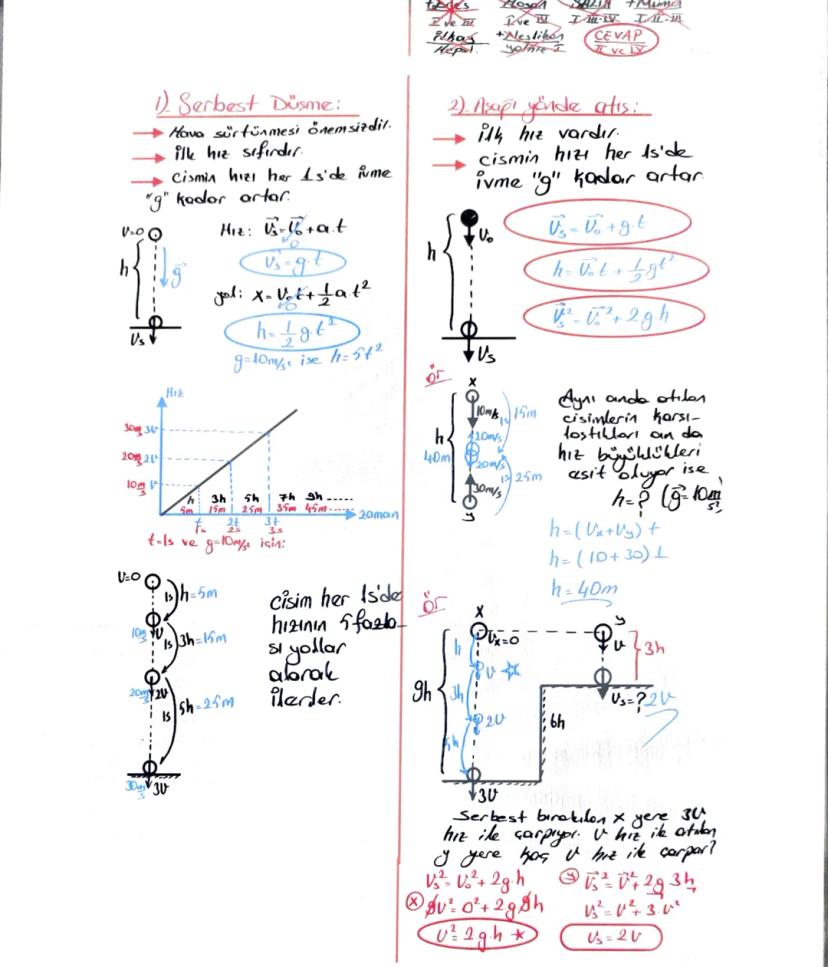 I ve III
I ve IV
I-III-IV
I-II-III
Hepsi
+Neslihan
yalnız I
CEVAP
II ve IV
1) Serbest Düşme:
→ Hava sürtünmesi önemsizdir.
→ ilk hız sıfırdır.
→ Cismin hızı her 1s'de ivme
"g" kadar artar.
V=0
h
g
Vs
Hız: Vs=V0+a.t
0
Vs=g.t
yol: x=V0t+1/2at²
0
h=1/2g.t²
g=10m/s² ise h=5t²
Hız
30m/s 3V
20m/s 2V
10m/s V
h 3h 5h 7h 9h ------
5m 15m 25m 35m 45m....
t 2t 3t
2s 3s
zaman
t=1s ve g=10m/s² için:
V=0
1s h=5m
10m/s V
1s 3h=15m
20m/s 2V
1s 5h=25m
30m/s 3V
cisim her 1s'de
hızının 5 fazla-
sı yollar
alarak
ilerler.
2) Aşağı yönde atış:
→ ilk hız vardır.
→ cismin hızı her 1s'de
ivme "g" kadar artar.
h
V0
Vs
Vs=V0+g.t
h=V0t+1/2gt²
Vs²=V0²+2gh
ör
x
10m/s
1s
15m
h
40m
20m/s
20m/s
1s
25m
30m/s
y
Aynı anda atılan
cisimlerin karşı-
laştıkları an da
hız büyüklükleri
eşit oluyor ise
h=? (g=10m/s²)
h=(Vx+Vy)t
h=(10+30)1
h=40m
ör
x
Vx=0
y
V
3h
h
V
9h
3h
2V
5h
6h
Vs=? 2V
3V
Serbest bırakılan x yere 3V
hız ile çarpıyor. V hız ile atılan
y yere kaç V hız ile çarpar?
Vs²=V0²+2g.h
(x) 9V²=0²+2g9h
V²=2gh *
(y) Vs²=V²+2g3h
Vs²=V²+3.V²
Vs=2V